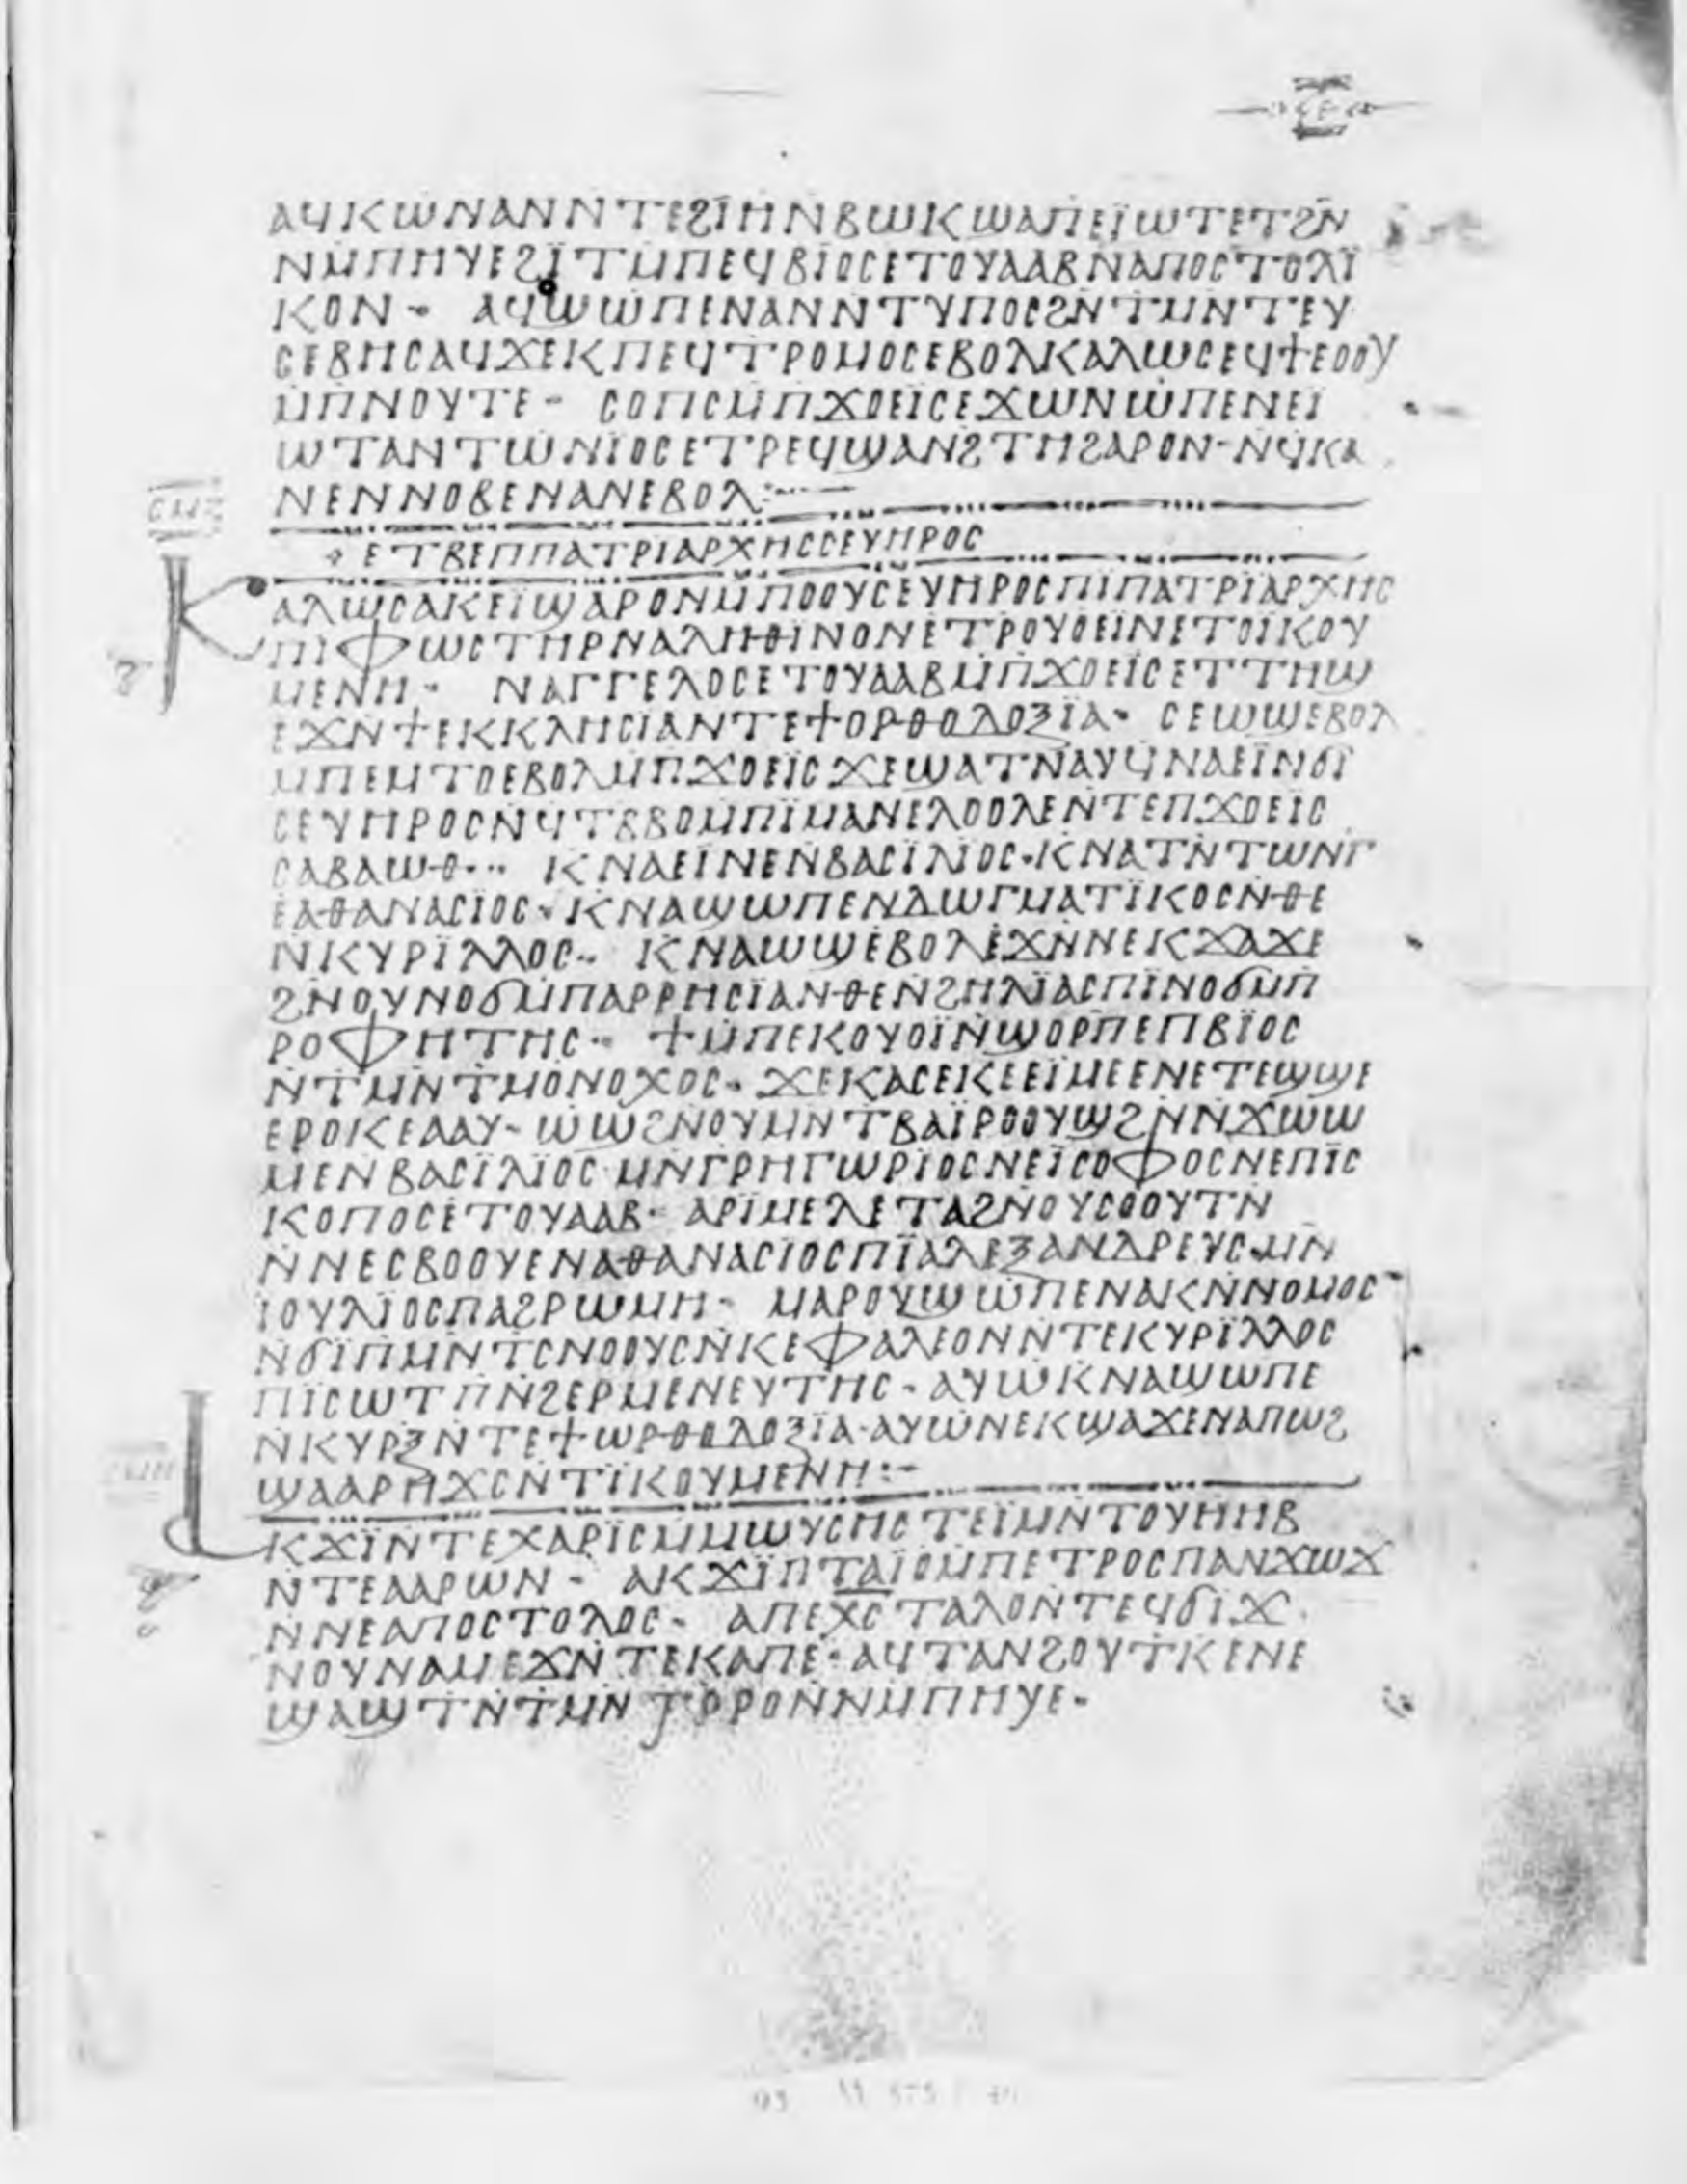 ⲥⲉ
ⲁϥⲕⲱⲛⲁⲛⲛⲧⲉϩⲓⲏⲛⲃⲱⲕϣⲁⲡⲉⲓⲱⲧⲉⲧϩⲛ
ⲛⲙⲡⲏⲩⲉϩⲓⲧⲙⲡⲉϥⲃⲓⲟⲥⲉⲧⲟⲩⲁⲁⲃⲛⲁⲡⲟⲥⲧⲟⲗⲓ
ⲕⲟⲛ- ⲁϥϣⲱⲡⲉⲛⲁⲛⲛⲧⲩⲡⲟⲥϩⲛⲧⲙⲛⲧⲉⲩ
ⲥⲉⲃⲏⲥⲁϥϫⲉⲕⲡⲉϥⲧⲣⲟⲙⲟⲥⲉⲃⲟⲗⲕⲁⲗⲱⲥⲉϥϯⲉⲟⲟⲩ
ⲙⲡⲛⲟⲩⲧⲉ- ⲥⲟⲡⲥⲙⲡϫⲟⲉⲓⲥⲉϫⲱⲛⲱⲡⲉⲛⲉⲓ
ⲱⲧⲁⲛⲧⲱⲛⲓⲟⲥⲉⲧⲣⲉϥϣⲁⲛϩⲧⲏϩⲁⲣⲟⲛ-ⲛϥⲕⲁ
ⲛⲉⲛⲛⲟⲃⲉⲛⲁⲛⲉⲃⲟⲗ:-
ⲉⲧⲃⲉⲡⲡⲁⲧⲣⲓⲁⲣⲭⲏⲥⲥⲉⲩⲏⲣⲟⲥ
ⲕⲁⲗⲱⲥⲁⲕⲉⲓϣⲁⲣⲟⲛⲙⲡⲟⲟⲩⲥⲉⲩⲏⲣⲟⲥⲡⲓⲡⲁⲧⲣⲓⲁⲣⲭⲏⲥ
ⲡⲓⲫⲱⲥⲧⲏⲣⲛⲁⲗⲏⲑⲓⲛⲟⲛⲉⲧⲣⲟⲩⲟⲉⲓⲛⲉⲧⲟⲓⲕⲟⲩ
ⲙⲉⲛⲏ- ⲛⲁⲅⲅⲉⲗⲟⲥⲉⲧⲟⲩⲁⲁⲃⲙⲡϫⲟⲉⲓⲥⲉⲧⲧⲏϣ
ⲉϫⲛϯⲉⲕⲕⲗⲏⲥⲓⲁⲛⲧⲉϯⲟⲣⲑⲟⲇⲟⲝⲓⲁ- ⲥⲉⲱϣⲉⲃⲟⲗ
ⲙⲡⲉⲙⲧⲟⲉⲃⲟⲗⲙⲡϫⲟⲉⲓⲥϫⲉϣⲁⲧⲛⲁⲩϥⲛⲁⲉⲓⲛϭⲓ
ⲥⲉⲩⲏⲣⲟⲥⲛϥⲧⲃⲃⲟⲙⲡⲓⲙⲁⲛⲉⲗⲟⲟⲗⲉⲛⲧⲉⲡϫⲟⲉⲓⲥ
ⲥⲁⲃⲁⲱⲑ- ⲕⲛⲁⲉⲓⲛⲉⲛⲃⲁⲥⲓⲗⲓⲟⲥ-ⲕⲛⲁⲧⲛⲧⲱⲛⲅ
ⲉⲁⲑⲁⲛⲁⲥⲓⲟⲥ-ⲕⲛⲁϣⲱⲡⲉⲛⲇⲱⲅⲙⲁⲧⲓⲕⲟⲥⲛⲑⲉ
ⲛⲕⲩⲣⲓⲗⲗⲟⲥ- ⲕⲛⲁⲱϣⲉⲃⲟⲗⲉϫⲛⲛⲉⲕϫⲁϫⲉ
ϩⲛⲟⲩⲛⲟϭⲙⲡⲁⲣⲣⲏⲥⲓⲁⲛⲑⲉⲛϩⲏⲗⲓⲁⲥⲡⲓⲛⲟϭⲙⲡ
ⲣⲟⲫⲏⲧⲏⲥ- ϯⲙⲡⲉⲕⲟⲩⲟⲓⲛϣⲟⲣⲡⲉⲡⲃⲓⲟⲥ
ⲛⲧⲙⲛⲧⲙⲟⲛⲟⲭⲟⲥ-ϫⲉⲕⲁⲥⲉⲕⲉⲉⲓⲙⲉⲉⲛⲉⲧⲉϣϣⲉ
ⲉⲣⲟⲕⲉⲁⲁⲩ-ⲱϣϩⲛⲟⲩⲙⲛⲧⲃⲁⲓⲣⲟⲟⲩϣϩⲛⲛϫⲱⲱ
ⲙⲉⲛⲃⲁⲥⲓⲗⲓⲟⲥ-ⲙⲛⲅⲣⲏⲅⲱⲣⲓⲟⲥⲛⲉⲓⲥⲟⲫⲟⲥⲛⲉⲡⲓⲥ
ⲕⲟⲡⲟⲥⲉⲧⲟⲩⲁⲁⲃ- ⲁⲣⲓⲙⲉⲗⲉⲧⲁϩⲛⲟⲩⲥⲟⲟⲩⲧⲛ
ⲛⲛⲉⲥⲃⲟⲟⲩⲉⲛⲁⲑⲁⲛⲁⲥⲓⲟⲥⲡⲓⲁⲗⲉⲝⲁⲛⲇⲣⲉⲩⲥ-ⲙⲛ
ⲓⲟⲩⲗⲓⲟⲥⲡⲁϩⲣⲱⲙⲏ- ⲙⲁⲣⲟⲩϣⲱⲡⲉⲛⲁⲕⲛⲛⲟⲙⲟⲥ-
ⲛϭⲓⲡⲙⲛⲧⲥⲛⲟⲟⲩⲥⲛⲕⲉⲫⲁⲗⲉⲟⲛⲛⲧⲉⲕⲩⲣⲓⲗⲗⲟⲥ
ⲡⲓⲥⲱⲧⲡⲛϩⲉⲣⲙⲉⲛⲉⲩⲧⲏⲥ-ⲁⲩⲱⲕⲛⲁϣⲱⲡⲉ
ⲛⲕⲩⲣⲝⲛⲧⲉϯⲱⲣⲑⲟⲇⲟⲝⲓⲁ-ⲁⲩⲱⲛⲉⲕϣⲁϫⲉⲛⲁⲡⲱϩ
ϣⲁⲁⲣⲏϫⲥⲛⲧⲓⲕⲟⲩⲙⲉⲛⲏ:-
ⲁⲕϫⲓⲛⲧⲉⲭⲁⲣⲓⲥⲙⲙⲱⲩⲥⲏⲥⲧⲉⲓⲙⲛⲧⲟⲩⲏⲏⲃ
ⲛⲧⲉⲁⲁⲣⲱⲛ- ⲁⲕϫⲓⲡⲧⲁⲓⲟⲙⲡⲉⲧⲣⲟⲥⲡⲁⲛϫⲱϫ
ⲛⲛⲉⲁⲡⲟⲥⲧⲟⲗⲟⲥ- ⲁⲡⲉⲭⲥⲧⲁⲗⲟⲛⲧⲉϥϭⲓϫ
ⲛⲟⲩⲛⲁⲙⲉϫⲛⲧⲉⲕⲁⲡⲉ-ⲁϥⲧⲁⲛϩⲟⲩⲧⲕⲉⲛⲉ
ϣⲁϣⲧⲛⲧⲙⲛⲧⲣⲣⲟⲛⲛⲙⲡⲏⲩⲉ-